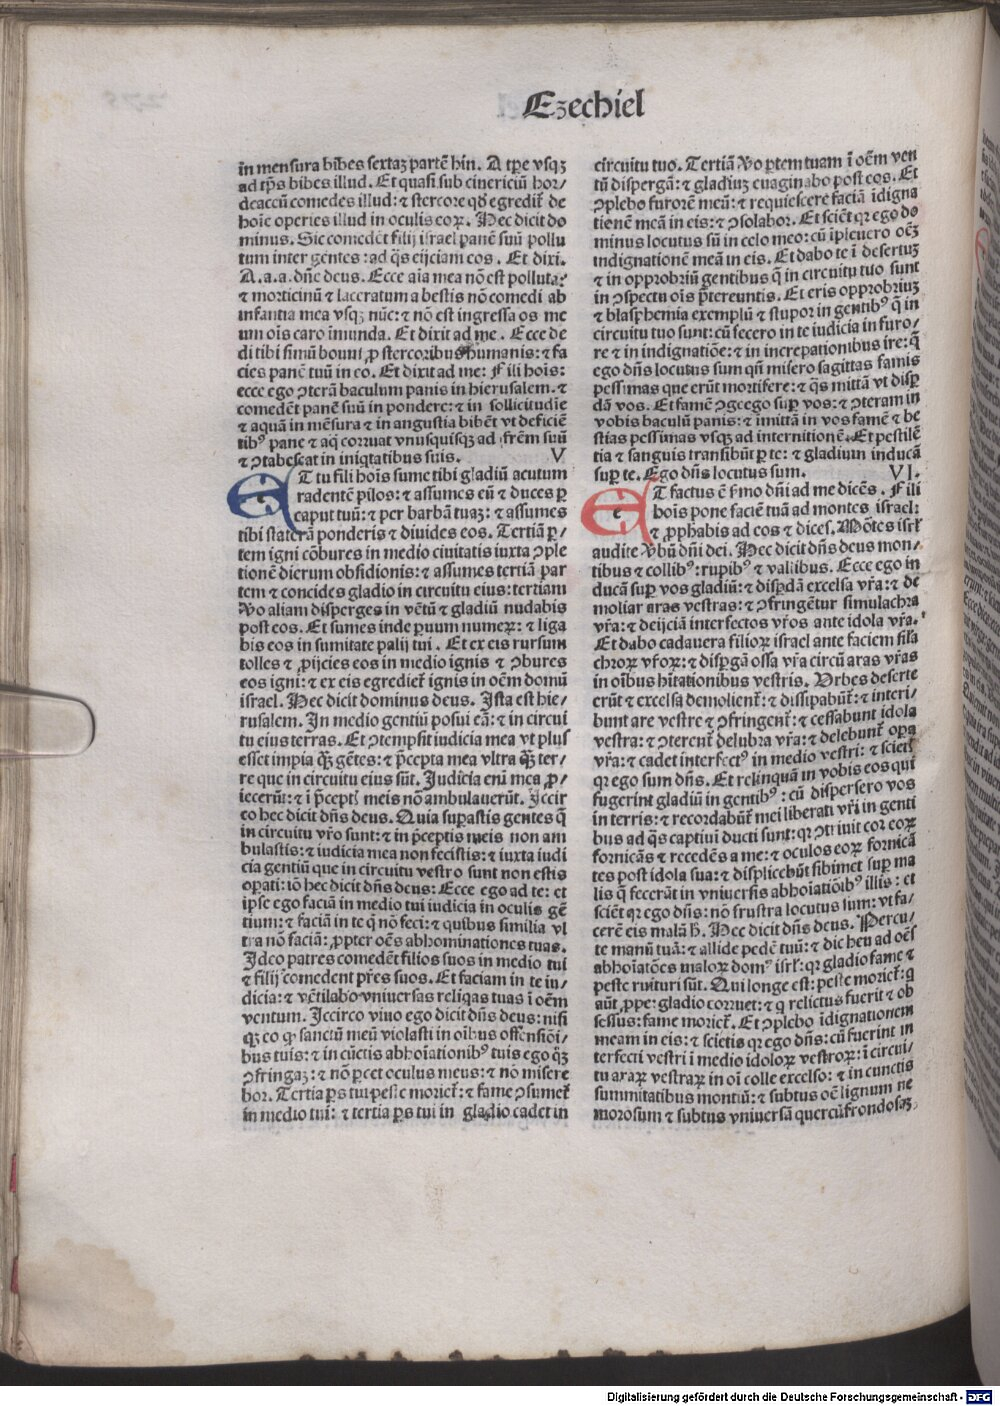 Ezechiel
in mensura bibes sextaʒ partē hin. A tp̄e vsqʒ
ad tp̄s bibes illud. Et quasi sub cinericiū hor/
deaceū comedes illud: ⁊ stercore qd̄ egredit᷑ de
hoīe operies illud in oculis eoꝝ. Hec dicit do
minus. Sic comedēt filij israel panē suū pollu
tum inter gentes: ad q̄s eijciam eos. Et dixi.
A.a.a. dn̄e deus. Ecce aīa mea nō est polluta:
⁊ morticinū ⁊ laceratum a bestis nō comedi ab
infantia mea vsqʒ nūc: ⁊ nō est ingressa os me
um oīs caro īmunda. Et dixit ad me. Ecce de
di tibi fimū boum ꝓ stercoribus humanis: ⁊ fa
cies panē tuū in eo. Et dixit ad me: Fili hoīs:
ecce ego ꝯterā baculum panis in hierusalem. ⁊
comedēt panē suū in pondere: ⁊ in sollicitudīe
⁊ aquā in mēsura ⁊ in angustia bibēt vt deficiē
tibꝰ pane ⁊ aq̄ corruat vnusquisqʒ ad frēm suū
⁊ ꝯtabescat in iniqtatibus suis. V
ET tu fili hoīs sume tibi gladiū acutum
radentē pilos: ⁊ assumes eū ⁊ duces ꝑ
caput tuū: ⁊ per barbā tuaʒ: ⁊ assumes
tibi staterā ponderis ⁊ diuides eos. Tertiā ꝑ/
tem igni cōbures in medio ciuitatis iuxta ꝯple
tionē dierum obsidionis: ⁊ assumes tertiā par
tem ⁊ concides gladio in circuitu eius: tertiam
ꝟo aliam disperges in vētū ⁊ gladiū nudabis
post eos. Et sumes inde ꝑuum numeꝝ: ⁊ liga
bis eos in sumitate palij tui. Et ex eis rursum
tolles ⁊ ꝓijcies eos in medio ignis ⁊ ꝯbures
eos igni: ⁊ ex eis egrediet᷑ ignis in oēm domū
israel. Hec dicit dominus deus. Ista est hie/
rusalem. In medio gentiū posui eā: ⁊ in circui
tu eius terras. Et ꝯtempsit iudicia mea vt plus
esset impia q̄ʒ gētes: ⁊ p̄cepta mea vltra q̄ʒ ter/
re que in circuitu eius sūt. Judicia enī mea ꝓ/
iecerūt: ⁊ ī p̄ceptis meis nō ambulauerūt. Jccir
co hec dicit dn̄s deus. Quia suꝑastis gentes q̄
in circuitu vr̄o sunt: ⁊ in p̄ceptis meis non am
bulastis: ⁊ iudicia mea non fecistis: ⁊ iuxta iudi
cia gentiū que in circuitu vestro sunt non estis
oꝑati: iō hec dicit dn̄s deus: Ecce ego ad te: et
ipse ego faciā in medio tui iudicia in oculis gē
tium: ⁊ faciā in te q̄ nō feci: ⁊ quibus similia vl
tra nō faciā: ꝓpter oēs abhominationes tuas.
Jdeo patres comedēt filios suos in medio tui
⁊ filij comedent pr̄es suos. Et faciam in te iu/
dicia: ⁊ vētilabo vniuersas reliqas tuas ī oēm
ventum. Jccirco viuo ego dicit dn̄s deus: nisi
ꝓ eo ꝙ sanctū meū violasti in oībus offensiōi/
bus tuis: ⁊ in cūctis abhoīationibꝰ tuis ego qʒ
ꝯfringaʒ: ⁊ nō ꝑcet oculus meus: ⁊ nō misere
bor. Tertia ꝑs tui peste moriet᷑: ⁊ fame ꝯsumet᷑
in medio tui: ⁊ tertia ꝑs tui in gladio cadet in
circuitu tuo. Tertiā ꝟo ꝑtem tuam ī oēm ven
tū dispergā: ⁊ gladiuʒ euaginabo post eos. Et
ꝯplebo furorē meū: ⁊ requiescere faciā īdigna
tionē meā in eis: ⁊ ꝯsolabor. Et sciēt qꝛ ego do
minus locutus sū in celo meo: cū īpleuero oēʒ
indignationē meā in eis. Et dabo te ī desertuʒ
⁊ in opprobriū gentibus q̄ in circuitu tuo sunt
in ꝯspectu oīs p̄tereuntis. Et eris opprobriuʒ
⁊ blasphemia exemplū ⁊ stupor in gentibꝰ q̄ in
circuitu tuo sunt: cū fecero in te iudicia in furo/
re ⁊ in indignatiōe: ⁊ in increpationibus ire: q̄
ego dn̄s locutus sum qn̄ misero sagittas famis
pessimas que erūt mortifere: ⁊ q̄s mittā vt disꝑ
dā vos. Et famē ꝯgcego suꝑ vos: ⁊ ꝯteram in
vobis baculū panis: ⁊ imittā in vos famē ⁊ be
stias pessimas vsqʒ ad internitionē. Et pestilē
tia ⁊ sanguis transibūt ꝑ te: ⁊ gladium inducā
suꝑ te. Ego dn̄s locutus sum. VI.
ET factus ē sermo dn̄i ad me dicēs. Fili
hoīs pone faciē tuā ad montes israel:
⁊ ꝓphabis ad eos ⁊ dices. Mōtes isrl̄
audite ꝟbū dn̄i dei. Hec dicit dn̄s deus mon/
tibus ⁊ collibꝰ: rupibꝰ ⁊ vallibus. Ecce ego in
ducā suꝑ vos gladiū: ⁊ disꝑdā excelsa vr̄a: ⁊ de
moliar aras vestras: ⁊ ꝯfringētur simulachra
vr̄a: ⁊ deijciā interfectos vr̄os ante idola vr̄a.
Et dabo cadauera filioꝝ israel ante faciem sīla
chroꝝ vr̄oꝝ: ⁊ disꝑgā ossa vr̄a circū aras vr̄as
in oībus hītationibus vestris. Vrbes deserte
erūt ⁊ excelsa demolient᷑: ⁊ dissipabūt᷑: ⁊ interi/
bunt are vestre ⁊ ꝯfringent᷑: ⁊ cessabunt idola
vestra: ⁊ ꝯterent᷑ delubra vr̄a: ⁊ delebunt᷑ oꝑa
vr̄a: ⁊ cadet interfectꝰ in medio vestri: ⁊ scietis
qꝛ ego sum dn̄s. Et relinquā in vobis eos qui
fugerint gladiū in gentibꝰ: cū dispersero vos
in terris: ⁊ recordabūt᷑ mei liberati vr̄i in genti
bus ad q̄s captiui ducti sunt: qꝛ ꝯtriuit cor eoꝝ
fornicās ⁊ recedēs a me: ⁊ oculos eoꝝ fornicā
tes post idola sua: ⁊ displicebūt sibimet suꝑ ma
lis q̄ fecerūt in vniuersis abhoīatiōibꝰ illis: et
sciēt qꝛ ego dn̄s: nō frustra locutus sum: vt fa/
cerē eis malū h̄. Hec dicit dn̄s deus. Percu/
te manū tuā: ⁊ allide pedē tuū: ⁊ dic heu ad oēs
abhoīatōes maloꝝ domꝰ isrl̄: qꝛ gladio fame ⁊
peste ruituri sūt. Qui longe est: peste moriet᷑: q
aūt ꝓpe: gladio corruet: ⁊ q relictus fuerit ⁊ ob
sessus: fame moriet᷑. Et ꝯplebo īdignationem
meam in eis: ⁊ scietis qꝛ ego dn̄s: cū fuerint in
terfecti vestri ī medio idoloꝝ vestroꝝ: ī circui/
tu araꝝ vestraꝝ in oī colle excelso: ⁊ in cunctis
summitatibus montiū: ⁊ subtus oē lignum ne
morosum ⁊ subtus vniuersā quercū frondosaʒ
Digitalisierung gefördert durch die Deutsche Forschungsgemeinschaft - DFG